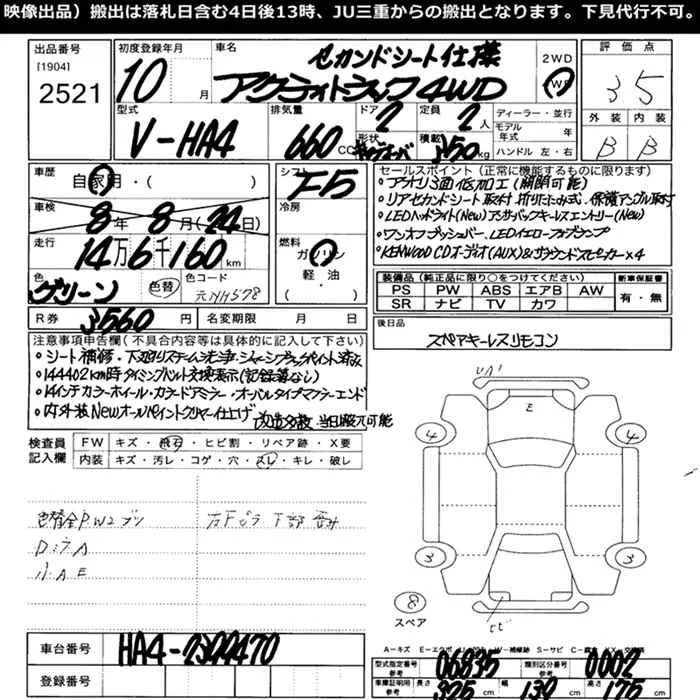 映像出品）搬出は落札日含む4日後13時、JU三重からの搬出となります。下見代行不可。
出品番号
[1904]
2521
初度登録年月
10
月
車名
セカンドシート仕様
アクティトラック 4WD
2WD
4WD
評価点
3.5
外装
内装
B
B
型式
V-HA4
排気量
660
CC
ドア
2
形状
定員
2
人
積載
350
kg
ディーラー・並行
モデル年式
年
ハンドル 左・右
車歴
自家用・（ ）
車検
8年 8月(24日)
走行
14万6千160km
色
グリーン
色替
色コード
元NH578
シフト
F5
冷房
燃料
ガソリン
軽・油
（ ）
R券
3560
円
名変期限
月
日
セールスポイント（正常に機能するものに限ります）
・アオリ3面低加工(開閉可能)
・リアセカンドシート取付 折りたたみ式、保護アングル取付
・LEDヘッドライト(New)アンサーバックキーレスエントリー(New)
・ワンオフプッシュバー、LEDイエローフォグランプ
・KENWOOD CDオーディオ(AUX)&サラウンドスピーカー×4
装備品（純正品に限り○をつけてください）
新車保証書
PS PW ABS エアB AW
SR ナビ TV カワ
有・無
後日品
スペアキーレスリモコン
注意事項申告欄(不具合内容等は具体的に記入して下さい)
・シート補修・下廻りスチーム洗浄・シャーシブラックペイント済
・144402km時タイミングベルト交換表示(記録簿なし)
・14インチカラーホイール・カラードアミラー・オーバルタイプマフラーエンド
・内外装Newオールペイントクリヤー仕上げ
当日搬入可能
検査員記入欄
FW
キズ・飛石・ヒビ割・リペア跡・X要
内装
キズ・汚レ・コゲ・穴・スレ・キレ・破レ
色替全P W2
右F
下部
UA1
E
4
4
3
3
8
スペア
車台番号
HA4-2322470
登録番号
型式指定番号
参考
06835
類別区分番号
参考
0002
車庫証明用
参考
長さ
325
cm
幅
139
cm
高さ
175
cm